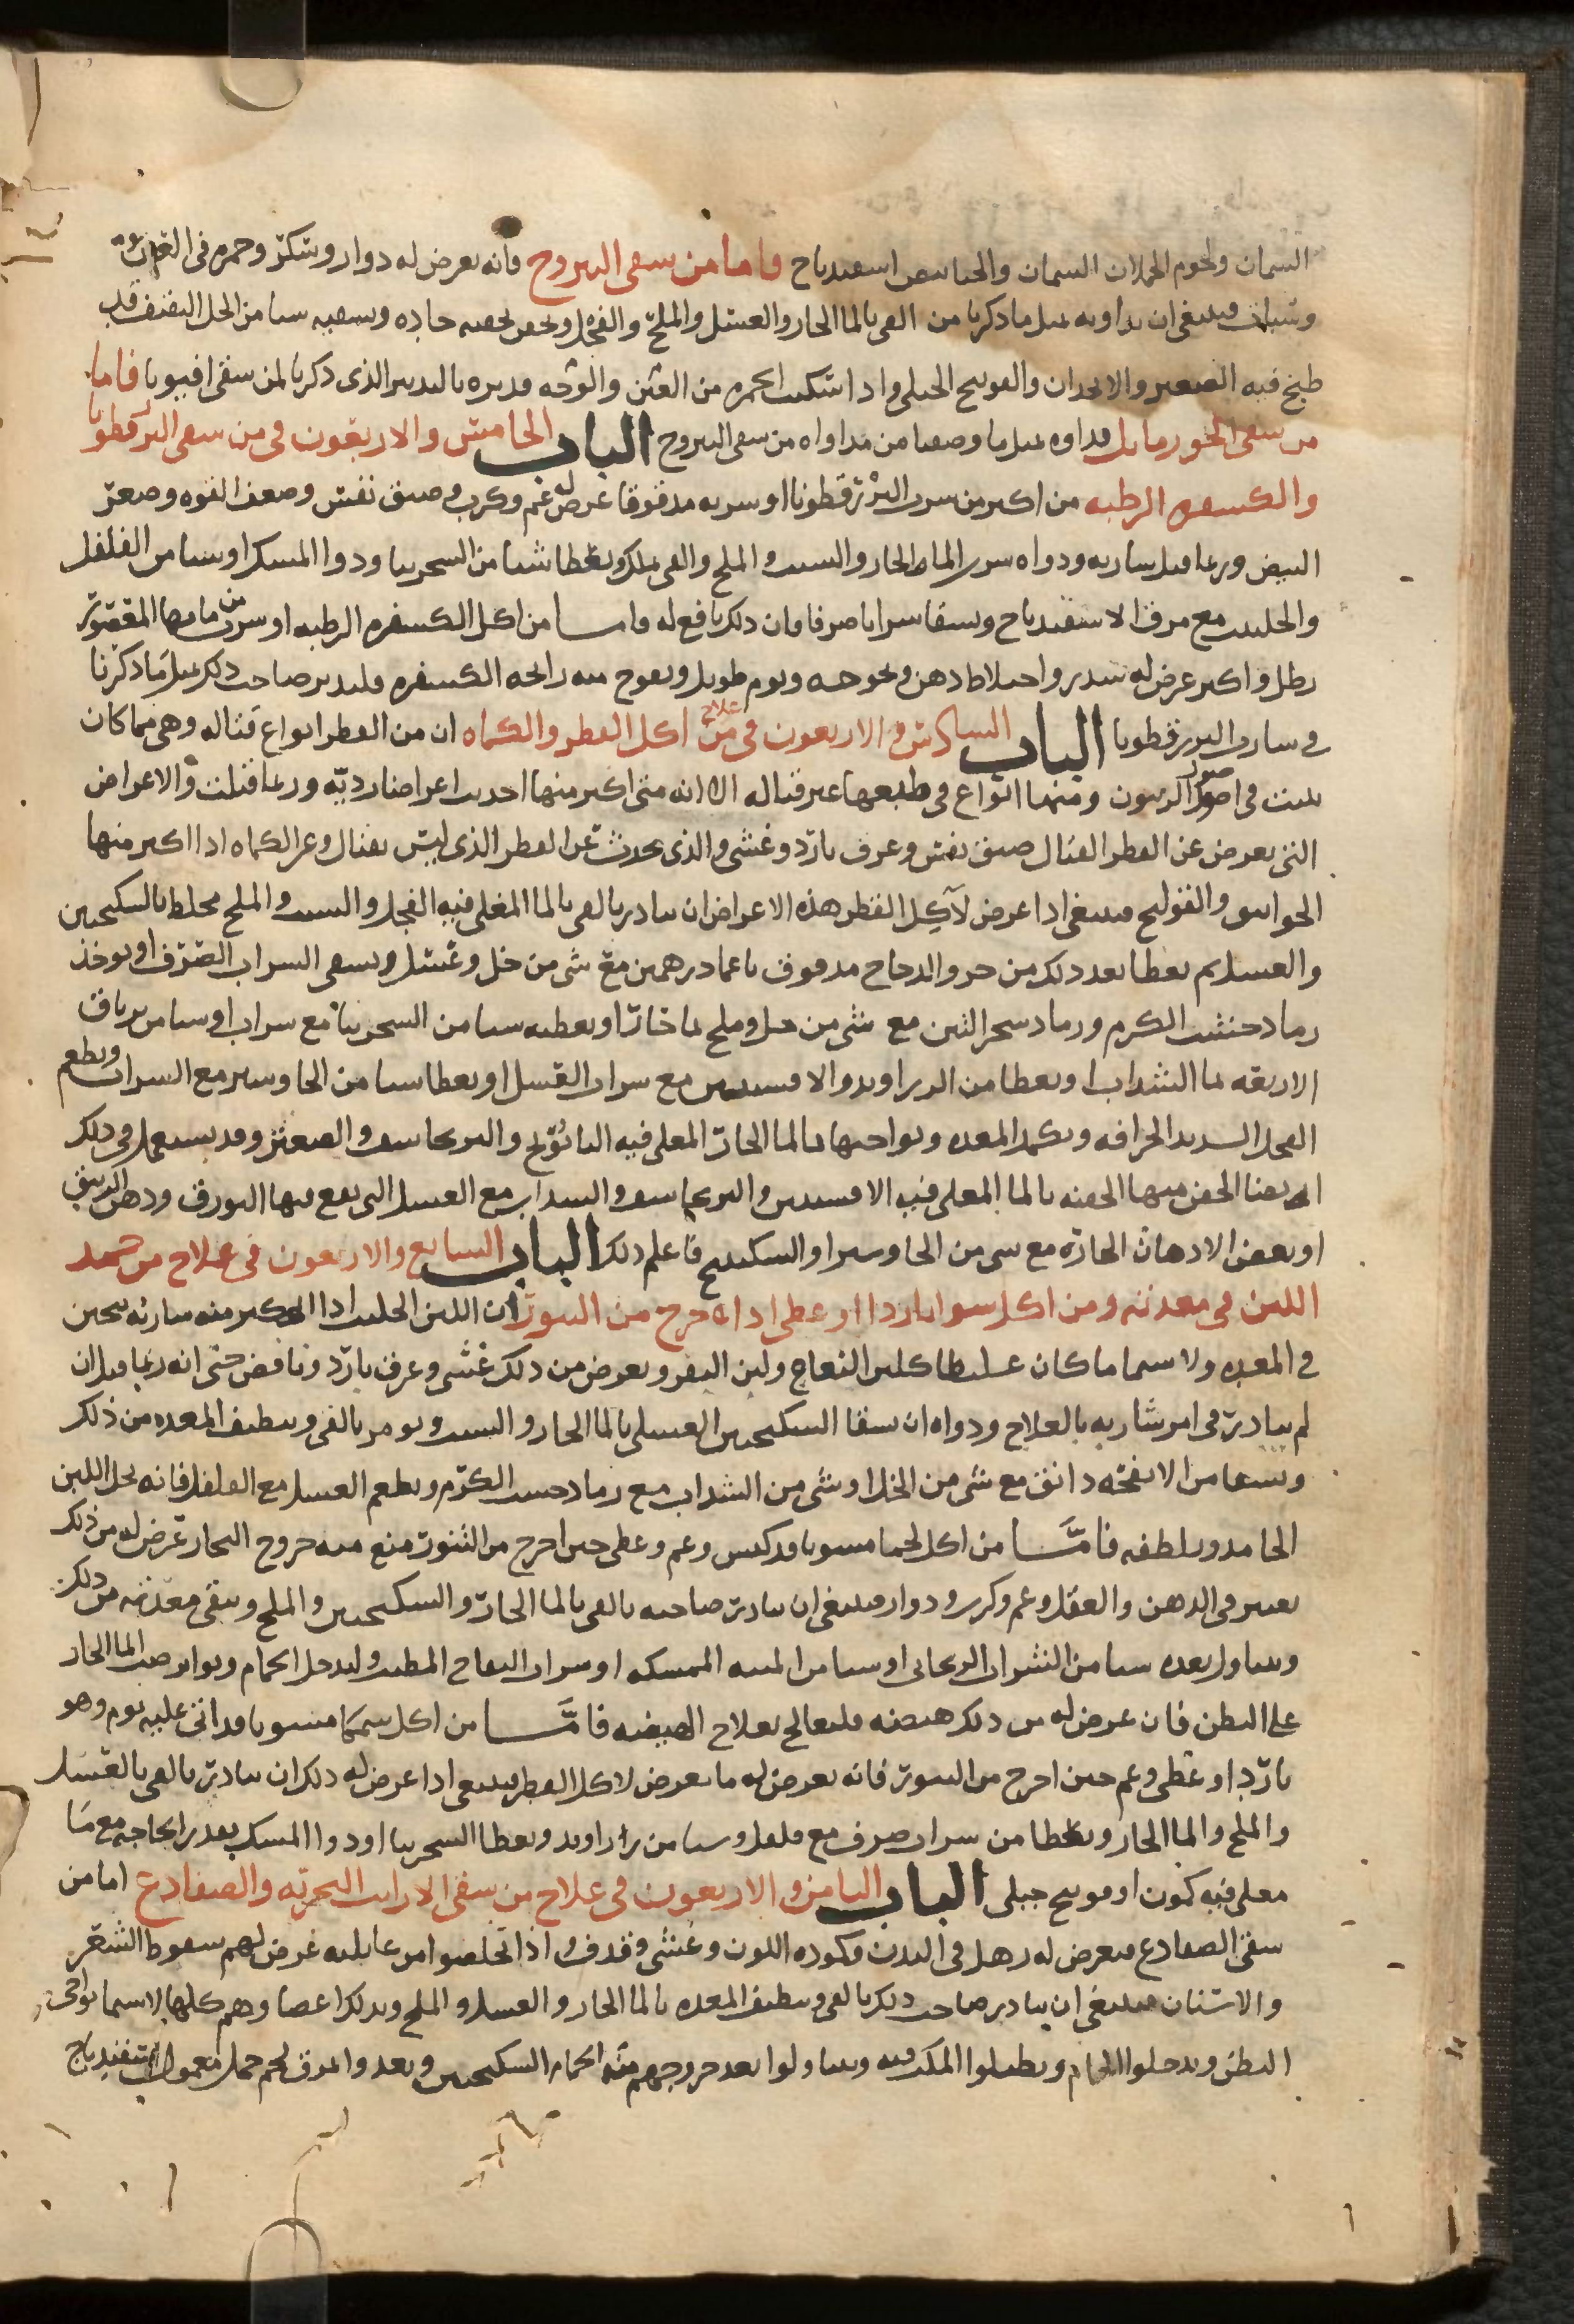 السمان ولحوم الحملان السمان والحساسص اسفيدباج فاما من سقى اليبروح فانه يعرض له دوار وسكر وحمره فى العين
وسبات فينبغى ان يداويه بمثل ما ذكرنا من القى بالما الحار والعسل والملح والفجل ويحقن بحقنه حاده وسقيه شيا من الخل الثقيف قد
طبخ فيه الصعتر والانجدان والفوتنج الجبلى واذا سكنت الحمره من العين والوجه فدبره بالتدبير الذى ذكرنا لمن سقى افيونا فاما
من سقى الجوز ماثل فداوه بمثل ما وصفنا من مداواه من سقى اليبروح الباب الخامس والاربعون فى من سقى البزرقطونا
والكسفره الرطبه من اكثر من شرب البزرقطونا او شربه مدقوقا عرض له غم وكرب وضيق نفس وضعف القوه وصغر
النبض وربما قتل شاربه ودواه شرب الما الحار والشبت والملح والقى بذلك ويعطا شيا من السجزينا ودوا المسك او شيا من الفلفل
والحلتيت مع مرق الاسفيدباج ويسقا شرابا صرفا فان ذلك نافع له واما من اكل الكسفره الرطبه او شرب من مايها المقصور
رطل واكثر عرض له سدر واختلاط ذهن وبحوحه ونوم طويل ويفوح منه رايحه الكسفره فليدبر صاحب ذلك بمثل ما ذكرنا
فى شارب البزرقطونا الباب السادس والاربعون فى علاج من اكل الفطر والكماه ان من الفطر انواع قتاله وهى مما كان
ينبت فى اصول الزيتون ومنها انواع فى طبعها غير قتاله الا انه متى اكثر منها احدثت اعراضا رديه وربما قتلت والاعراض
التى يعرض عن الفطر القتال ضيق نفس وعرق بارد وغشى والذى يحدث عن الفطر الذى ليس بقتال وعن الكماه اذا اكثر منها
الخوانيق والقولنج فينبغى اذا عرض لآكل الفطر هذه الاعراض ان يبادر بالقى بالما المغلى فيه الفجل والشبت والملح مخلط بالسكنجبين
والعسل ثم يعطا بعد ذلك من خرو الدجاج مدقوق ناعما درهمين مع شى من خل وعسل ويسقى الشراب الصرف او يوخذ
رماد خشب الكرم ورماد شجر التين مع شى من خل وملح بما حار او يعطيه شيا من السجزينا مع شراب او شيا من ترياق
الاربعه بما السداب او يعطا من الزراوند والافسنتين مع شراب العسل او يعطا شيا من الجاوشير مع الشراب ويطعم
الفجل الشديد الحرافه ويكمد المعده ونواحيها بالما الحار المغلى فيه البابونج والبرنجاسف والصعتر وقد يستعمل فى ذلك
ايضا الحقن منها الحقنه بالما المغلى فيه الافسنتين والبرنجاسف والسداب مع العسل التى يقع فيها البورق ودهن الزيبق
او بعض الادهان الحاره مع شى من الجاوشير او السكبينج فاعلم ذلك الباب السابع والاربعون فى علاج من جمد
اللبن فى معدته ومن اكل شوا باردا او غطى اذا خرج من التنور ان اللبن الحليب اذا اكثر منه شاربه يجبن
فى المعده ولا سيما ما كان غليظا كلبن النعاج ولبن البقر ويعرض من ذلك غشى وعرق بارد ونافض حتى انه ربما قتل ان
لم يبادر فى امر شاربه بالعلاج ودواه ان يسقا السكنجبين العسلى بالما الحار والشبت ويومر بالقى وينظيف المعده من ذلك
ويسقا من الانفحه دانق مع شى من الخل او شى من السداب مع رماد خشب الكرم ويطعم العسل مع الفلفل فانه يحل اللبن
الجامد ويلطفه فامّا من اكل لحما مشويا قد كبس وغم وغطى حين اخرج من التنور منع منه خروج البخار عرض له من ذلك
تغير فى الذهن والعقل وغم وكرب ودوار فينبغى ان يبادر صاحبه بالقى بالما الحار والسكنجبين والملح وينقى معدته من ذلك
ويتناول بعده شيا من الشراب الريحانى او شيا من الميبه الممسكه او شراب التفاح المطيب وليدخل الحمام ويواتر صب الما الحار
على البطن فان عرض له من ذلك هيضه فليعالج بعلاج الهيضه فامّا من اكل سمكا مشويا قد اتى عليه يوم وهو
بارد او غطى وغم حين اخرج من التنور فانه يعرض له ما يعرض لاكل الفطر فينبغى اذا عرض له ذلك ان يبادر بالقى بالعسل
والملح والما الحار ويعطا من شراب صرف مع فلفل وشيا من زراوند ويعطا السجزينا او دوا المسك بقدر الحاجه مع ما
مغلى فيه كمون او فوتنج جبلى الباب الثامن والاربعون فى علاج من سقى الارانب البحريه والضفادع اما من
سقى الضفادع فيعرض له رهل فى البدن وكموده اللون وغشى وقذف واذا تخلصوا من غايلته عرض لهم سقوط الشعر
والاسنان فينبغى ان يبادر صاحب ذلك بالقى وينظيف المعده بالما الحار والعسل والملح ويدلك اعضاوهم كلها لاسيما نواحى
البطن ويدخلوا الحمام ويطيلوا المكث فيه ويتناولوا بعد خروجهم من الحمام السكنجبين ويغدوا مرق لحم حمل معمول اسفيدباج